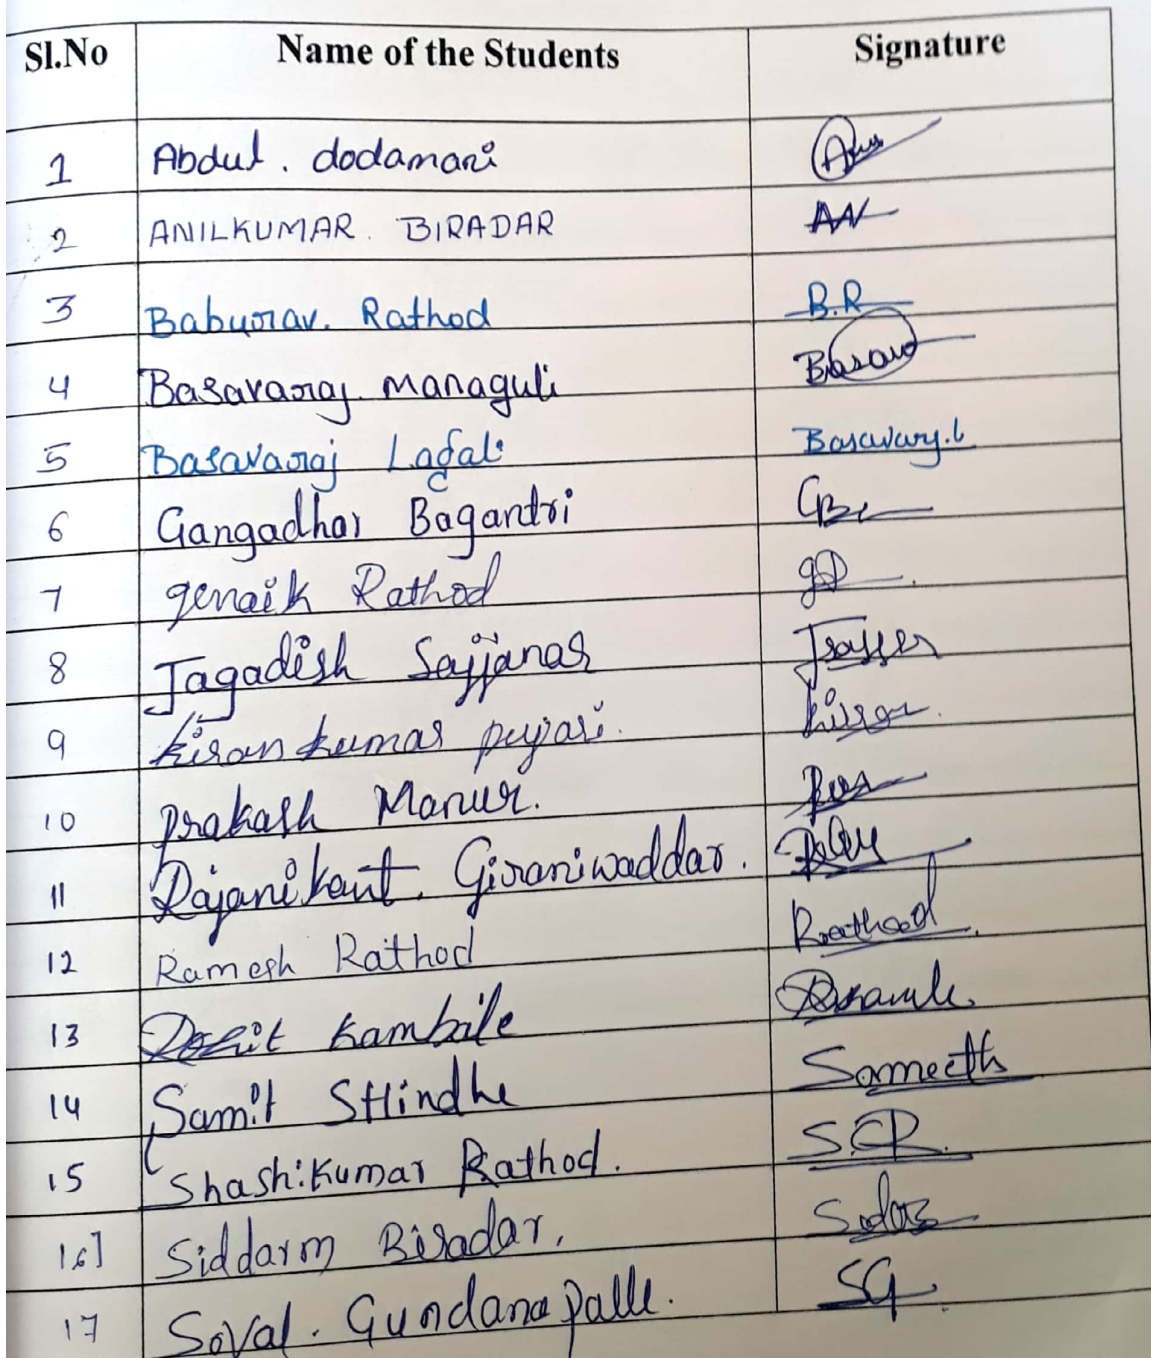 Sl.No Name of the Students Signature
1 Abdul. dodamani
2 ANILKUMAR. BIRADAR AN
3 Baburav. Rathod B.R
4 Basavaraj. Managuli Basava
5 Basavaraj Lagali Basavaraj.L
6 Gangadhar Bagantri
7 genaik Rathod
8 Jagadish Sajjanar
9 kirankumar pujari. kiran
10 Prakash Manur.
11 Rajanikant. Giraniwaddar.
12 Ramesh Rathod Rathod
13 Rohit kambile
14 Samit SHindhe Sameeth
15 Shashikumar Rathod. S.G.R.
16] Siddarm Biradar.
17 Soval. Gundanapalle. SG